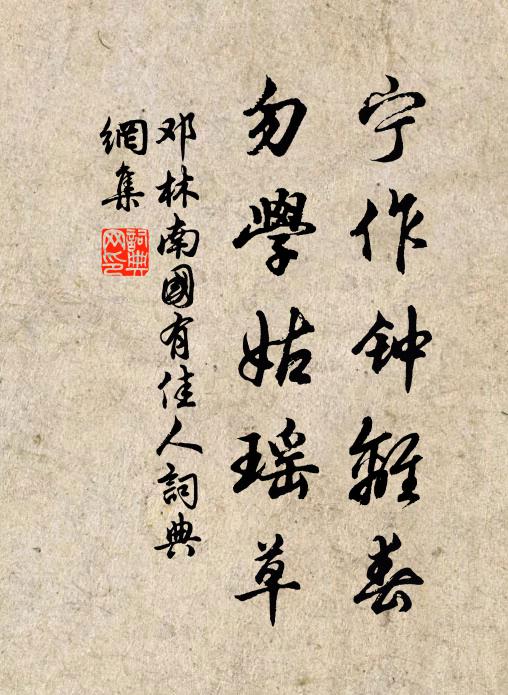 宁作钟離春
勿學姑瑶草
邓林南國有佳人詞典
網集
詞典
网印